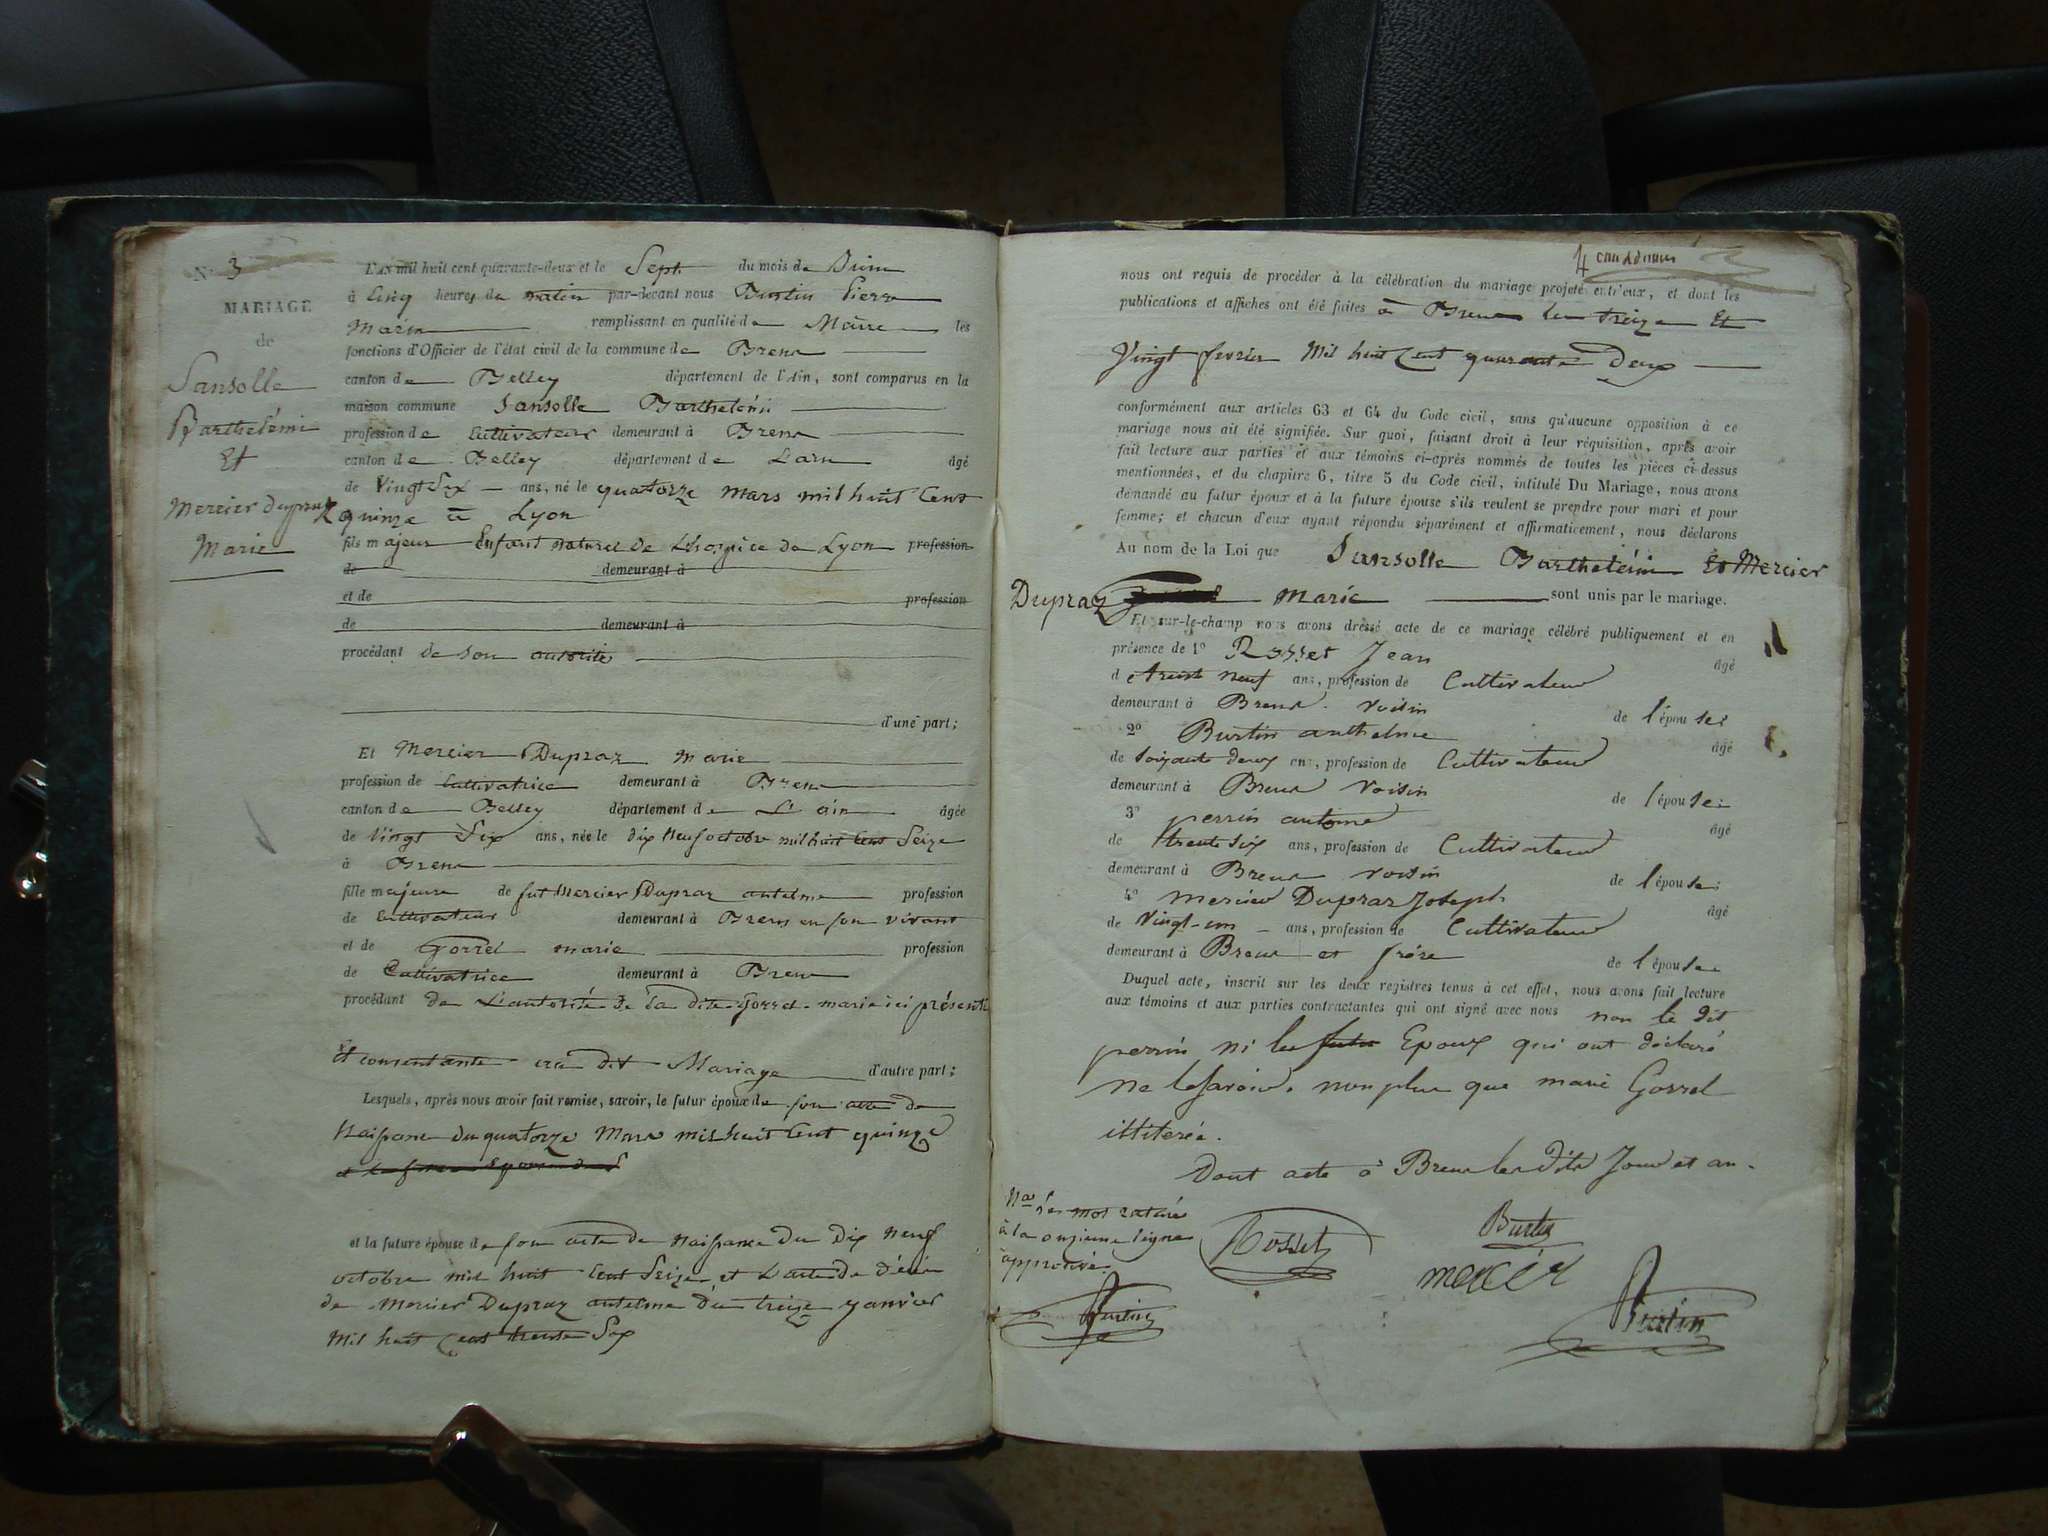 N° 3
MARIAGE
de
Sansolle
Barthelémi
Et
Mercier dupraz
Marie
L'AN mil huit cent quarante-deux et le Sept du mois de Juin
à Cinq heures du matin par-devant nous Burtin Pierre
Marin remplissant en qualité de Maire les
fonctions d'Officier de l'état civil de la commune de Brens
canton de Belley département de l'Ain, sont comparus en la
maison commune Sansolle Barthelémi
profession de Cultivateur demeurant à Brens
canton de Belley département de L'ain âgé
de Vingt Six ans, né le quatorze mars mil huit Cent
quinze à Lyon
fils majeur Enfant naturel de L'hospice de Lyon profession
de demeurant à
et de profession
de demeurant à
procédant de son autorité
d'une part;
Et Mercier Dupraz marie
profession de Cultivatrice demeurant à Brens
canton de Belley département de L'ain âgée
de Vingt Six ans, née le dix Neuf octobre mil huit Cent Seize
à Brens
fille majeure de fut Mercier Dupraz antelme profession
de Cultivateur demeurant à Brens en son vivant
et de Gorrel marie profession
de Cultivatrice demeurant à Brens
procédant de L'autorité de la dite Gorrel marie ici présente
et consentante au dit Mariage d'autre part;
Lesquels, après nous avoir fait remise, savoir, le futur époux de son acte de
Naissance du quatorze Mars mil huit Cent quinze
et la future épouse de son acte de Naissance du dix Neuf
octobre mil huit Cent Seize et L'acte de décès
de Mercier Dupraz antelme du treize janvier
mil huit Cent trente Six
4
nous ont requis de procéder à la célébration du mariage projeté entr'eux, et dont les
publications et affiches ont été faites à Brens les treize Et
Vingt fevrier Mil huit Cent quarante Deux
conformément aux articles 63 et 64 du Code civil, sans qu'aucune opposition à ce
mariage nous ait été signifiée. Sur quoi, faisant droit à leur réquisition, après avoir
fait lecture aux parties et aux témoins ci-après nommés de toutes les pièces ci-dessus
mentionnées, et du chapitre 6, titre 5 du Code civil, intitulé Du Mariage, nous avons
demandé au futur époux et à la future épouse s'ils veulent se prendre pour mari et pour
femme; et chacun d'eux ayant répondu séparément et affirmativement, nous déclarons
Au nom de la Loi que Sansolle Barthelémi Et Mercier
Dupraz marie sont unis par le mariage.
Et sur-le-champ nous avons dressé acte de ce mariage célébré publiquement et en
présence de 1° Rosset Jean âgé
de trente neuf ans, profession de Cultivateur
demeurant à Brens voisin de l'épouse;
2° Burtin anthelme âgé
de soixante deux ans, profession de Cultivateur
demeurant à Brens voisin de l'épouse;
3° perrin antoine âgé
de trente six ans, profession de Cultivateur
demeurant à Brens voisin de l'épouse;
4° mercier Dupraz Joseph âgé
de Vingt-un ans, profession de Cultivateur
demeurant à Brens et frère de l'épouse
Duquel acte, inscrit sur les deux registres tenus à cet effet, nous avons fait lecture
aux témoins et aux parties contractantes qui ont signé avec nous non le dit
perrin ni les futur Epoux qui ont déclaré
ne le savoir, non plus que marie Gorrel
illiterée.
Dont acte à Brens les dits Jour et an.
mot raturé
à la onzieme ligne
approuvé
Rosset
Burtin
mercier
Burtin
Burtin